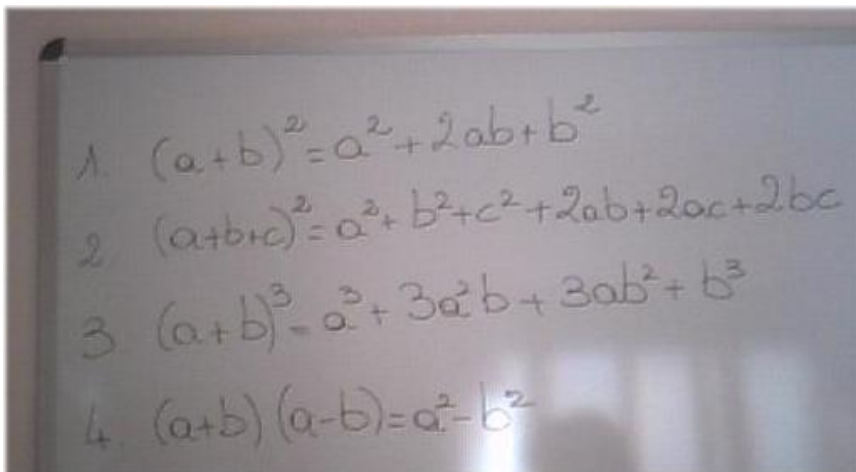 1. (a+b)²=a²+2ab+b²
2 (a+b+c)²=a²+b²+c²+2ab+2ac+2bc
3 (a+b)³=a³+3a²b+3ab²+b³
4. (a+b)(a-b)=a²-b²